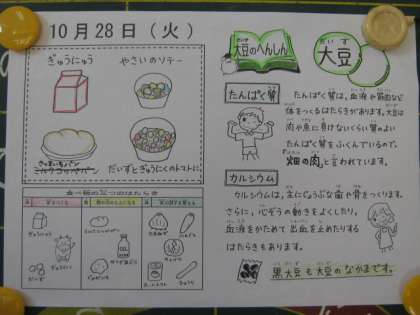 10月28日（火）
ぎゅうにゅう
やさいのソテー
さつまいもパン
ミルクコッペパン
だいずとぎゅうにくのトマトに
食べ物の3つのはたらき
ぎゅうにゅう
だいず
大豆のへんしん
だいず
大豆
たんぱく質
たんぱく質は、血液や筋肉など
体をつくるはたらきがあります。大豆は
肉や魚に負けないくらい質のよい
たんぱく質をふくんでいるので、
畑の肉と言われています。
カルシウム
カルシウムは、主にじょうぶな歯や骨をつくります。
さらに、心ぞうの動きをよくしたり、
血液をかためて出血を止めたりする
はたらきもあります。
黒大豆も大豆のなかまです。